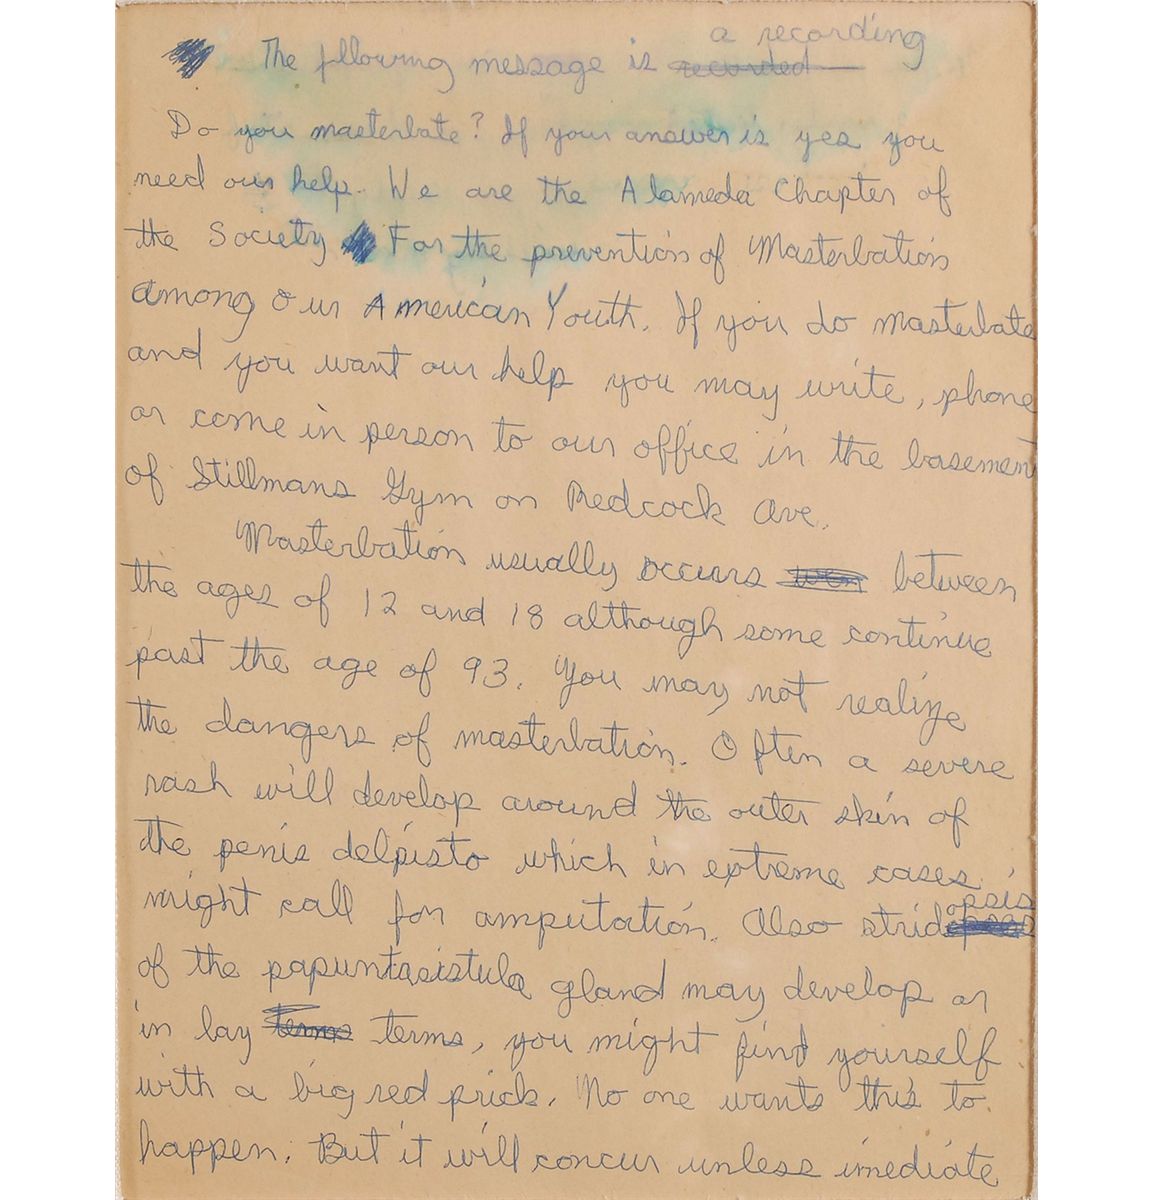 The fllowing message is recorded a recording
Do you masterbate? If your answer is yes you
need our help. We are the Alameda Chapter of
the Society For the prevention of Masterbation
among our American Youth. If you do masterbate
and you want our help you may write, phone
or come in person to our office in the basement
of Stillmans Gym on Redcock Ave.
Masterbation usually occurs between
the ages of 12 and 18 although some continue
past the age of 93. You may not realize
the dangers of masterbation. Often a severe
rash will develop around the outer skin of
the penis delpisto which in extreme cases
might call for amputation. Also stridopsis
of the papuntasistula gland may develop or
in lay terms terms, you might find yourself
with a big red prick. No one wants this to
happen. But it will concur unless imediate